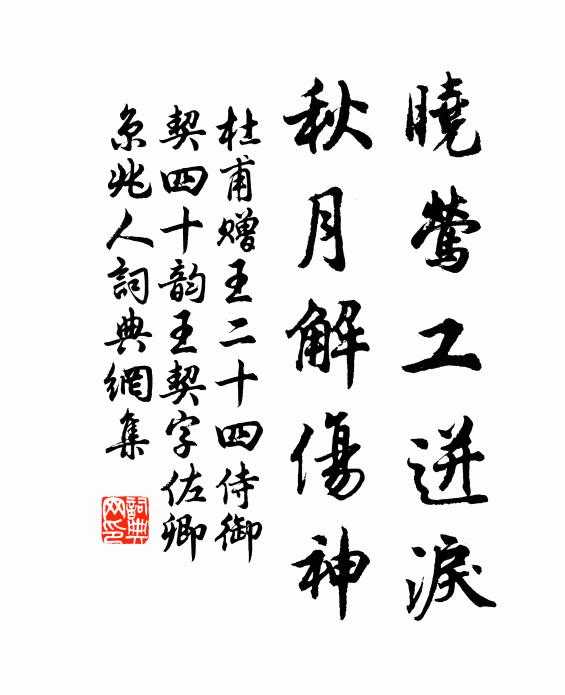 曉鶯工迸淚
秋月解傷神
杜甫赠王二十四侍御
契四十韵王契字佐卿
京兆人詞典網集
詞典
网印